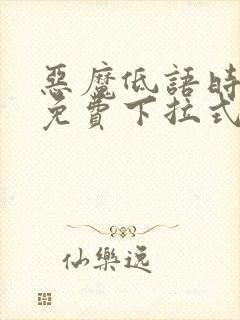 惡魔低語時
免費下拉式
仙樂逸